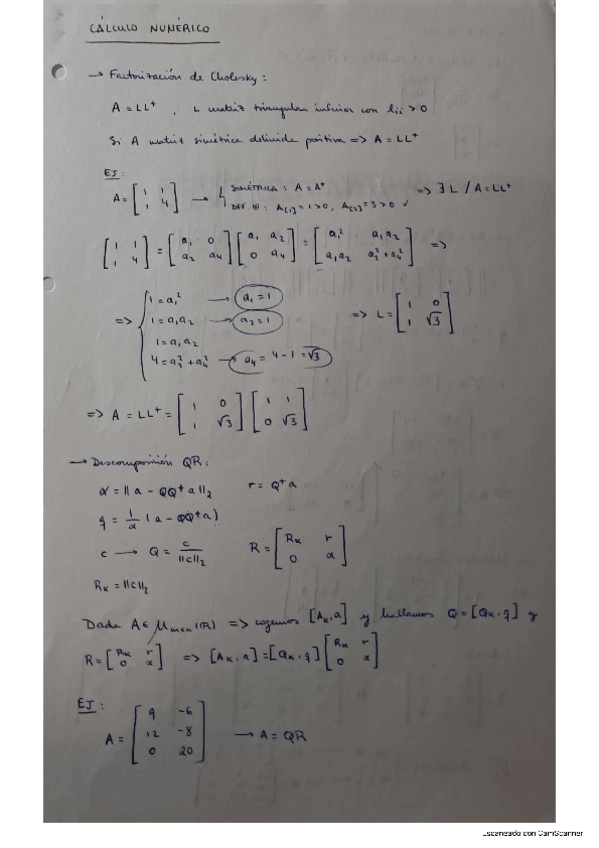 CÁLCULO NUMÉRICO
→ Factorización de Cholesky:
A = LL⁺ , L matriz triangular inferior con lii > 0
Si A matriz simétrica definida positiva => A = LL⁺
EJ:
A = [1 1; 1 4] → { SIMÉTRICA: A = A⁺ DEF. ⊕: A[1] = 1 > 0, A[2] = 3 > 0 ✓ => ∃ L / A = LL⁺
[1 1; 1 4] = [a₁ 0; a₂ a₄] [a₁ a₂; 0 a₄] = [a₁² a₁a₂; a₁a₂ a₂² + a₄²] =>
=> { 1 = a₁² → a₁ = 1
1 = a₁a₂ → a₂ = 1 => L = [1 0; 1 √3]
1 = a₁a₂
4 = a₂² + a₄² → a₄ = 4 - 1 = √3
=> A = LL⁺ = [1 0; 1 √3] [1 1; 0 √3]
→ Descomposición QR:
α = ||a - QQ⁺a||₂ r = Q⁺a
q = 1/α (a - QQ⁺a)
c → Q = c/||c||₂ R = [Rₖ r; 0 α]
Rₖ = ||c||₂
Dada A ∈ Mmxn(ℝ) => cogemos [Aₖ, a] y hallamos Q = [Qₖ, q] y
R = [Rₖ r; 0 α] => [Aₖ, a] = [Qₖ, q] [Rₖ r; 0 α]
EJ:
A = [9 -6; 12 -8; 0 20] → A = QR
Escaneado con CamScanner